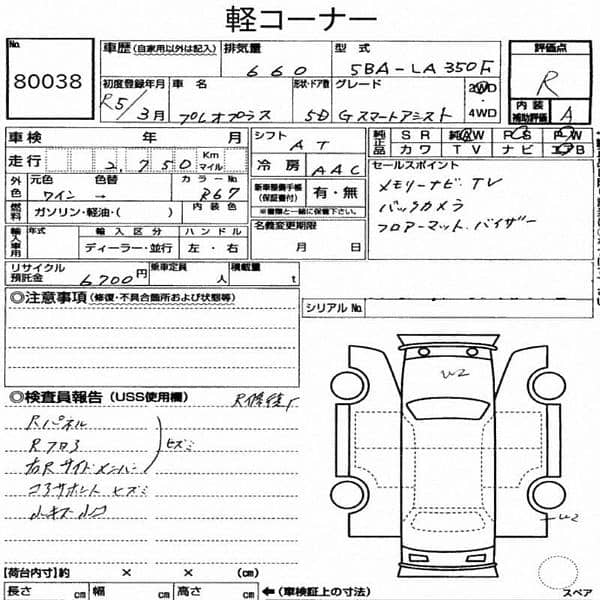 軽コーナー
No.
80038
車歴 (自家用以外は記入) 排気量 型式
660 5BA-LA350F
初度登録年月 車名 形状・ドア数 グレード 2WD ・4WD
R5/3月 プレオプラス 5D Gスマートアシスト
評価点
R
内装補助評価 A
車検 年 月
シフト AT
純正品 SR 純AW PS PW
カワ TV ナビ エアB
走行 2,750 Km マイル
冷房 AAC
セールスポイント
メモリーナビ.TV
バックカメラ
フロアーマット.バイザー
外色 元色 色替 カラーNo.
ワイン → R67
新車整備手帳(保証書付) 有・無
※書類と一緒に保管して下さい。
燃料 ガソリン・軽油・( ) 内装色
名義変更期限
月 日
輸入車用 年式 輸入区分 ハンドル
ディーラー・並行 左・右
リサイクル預託金 6700円 乗車定員 人 積載量 t
◎注意事項 (修復・不具合箇所および状態等)
シリアルNo.
◎検査員報告 (USS使用欄) R修復「
Rパネル
Rフロ3
右Rサイドメンバー
ヒズミ
コアサポート ヒズミ
小キズ小凹
W2
W2
スペア
【荷台内寸】約 × × (cm)
長さ cm 幅 cm 高さ cm ⇐(車検証上の寸法)